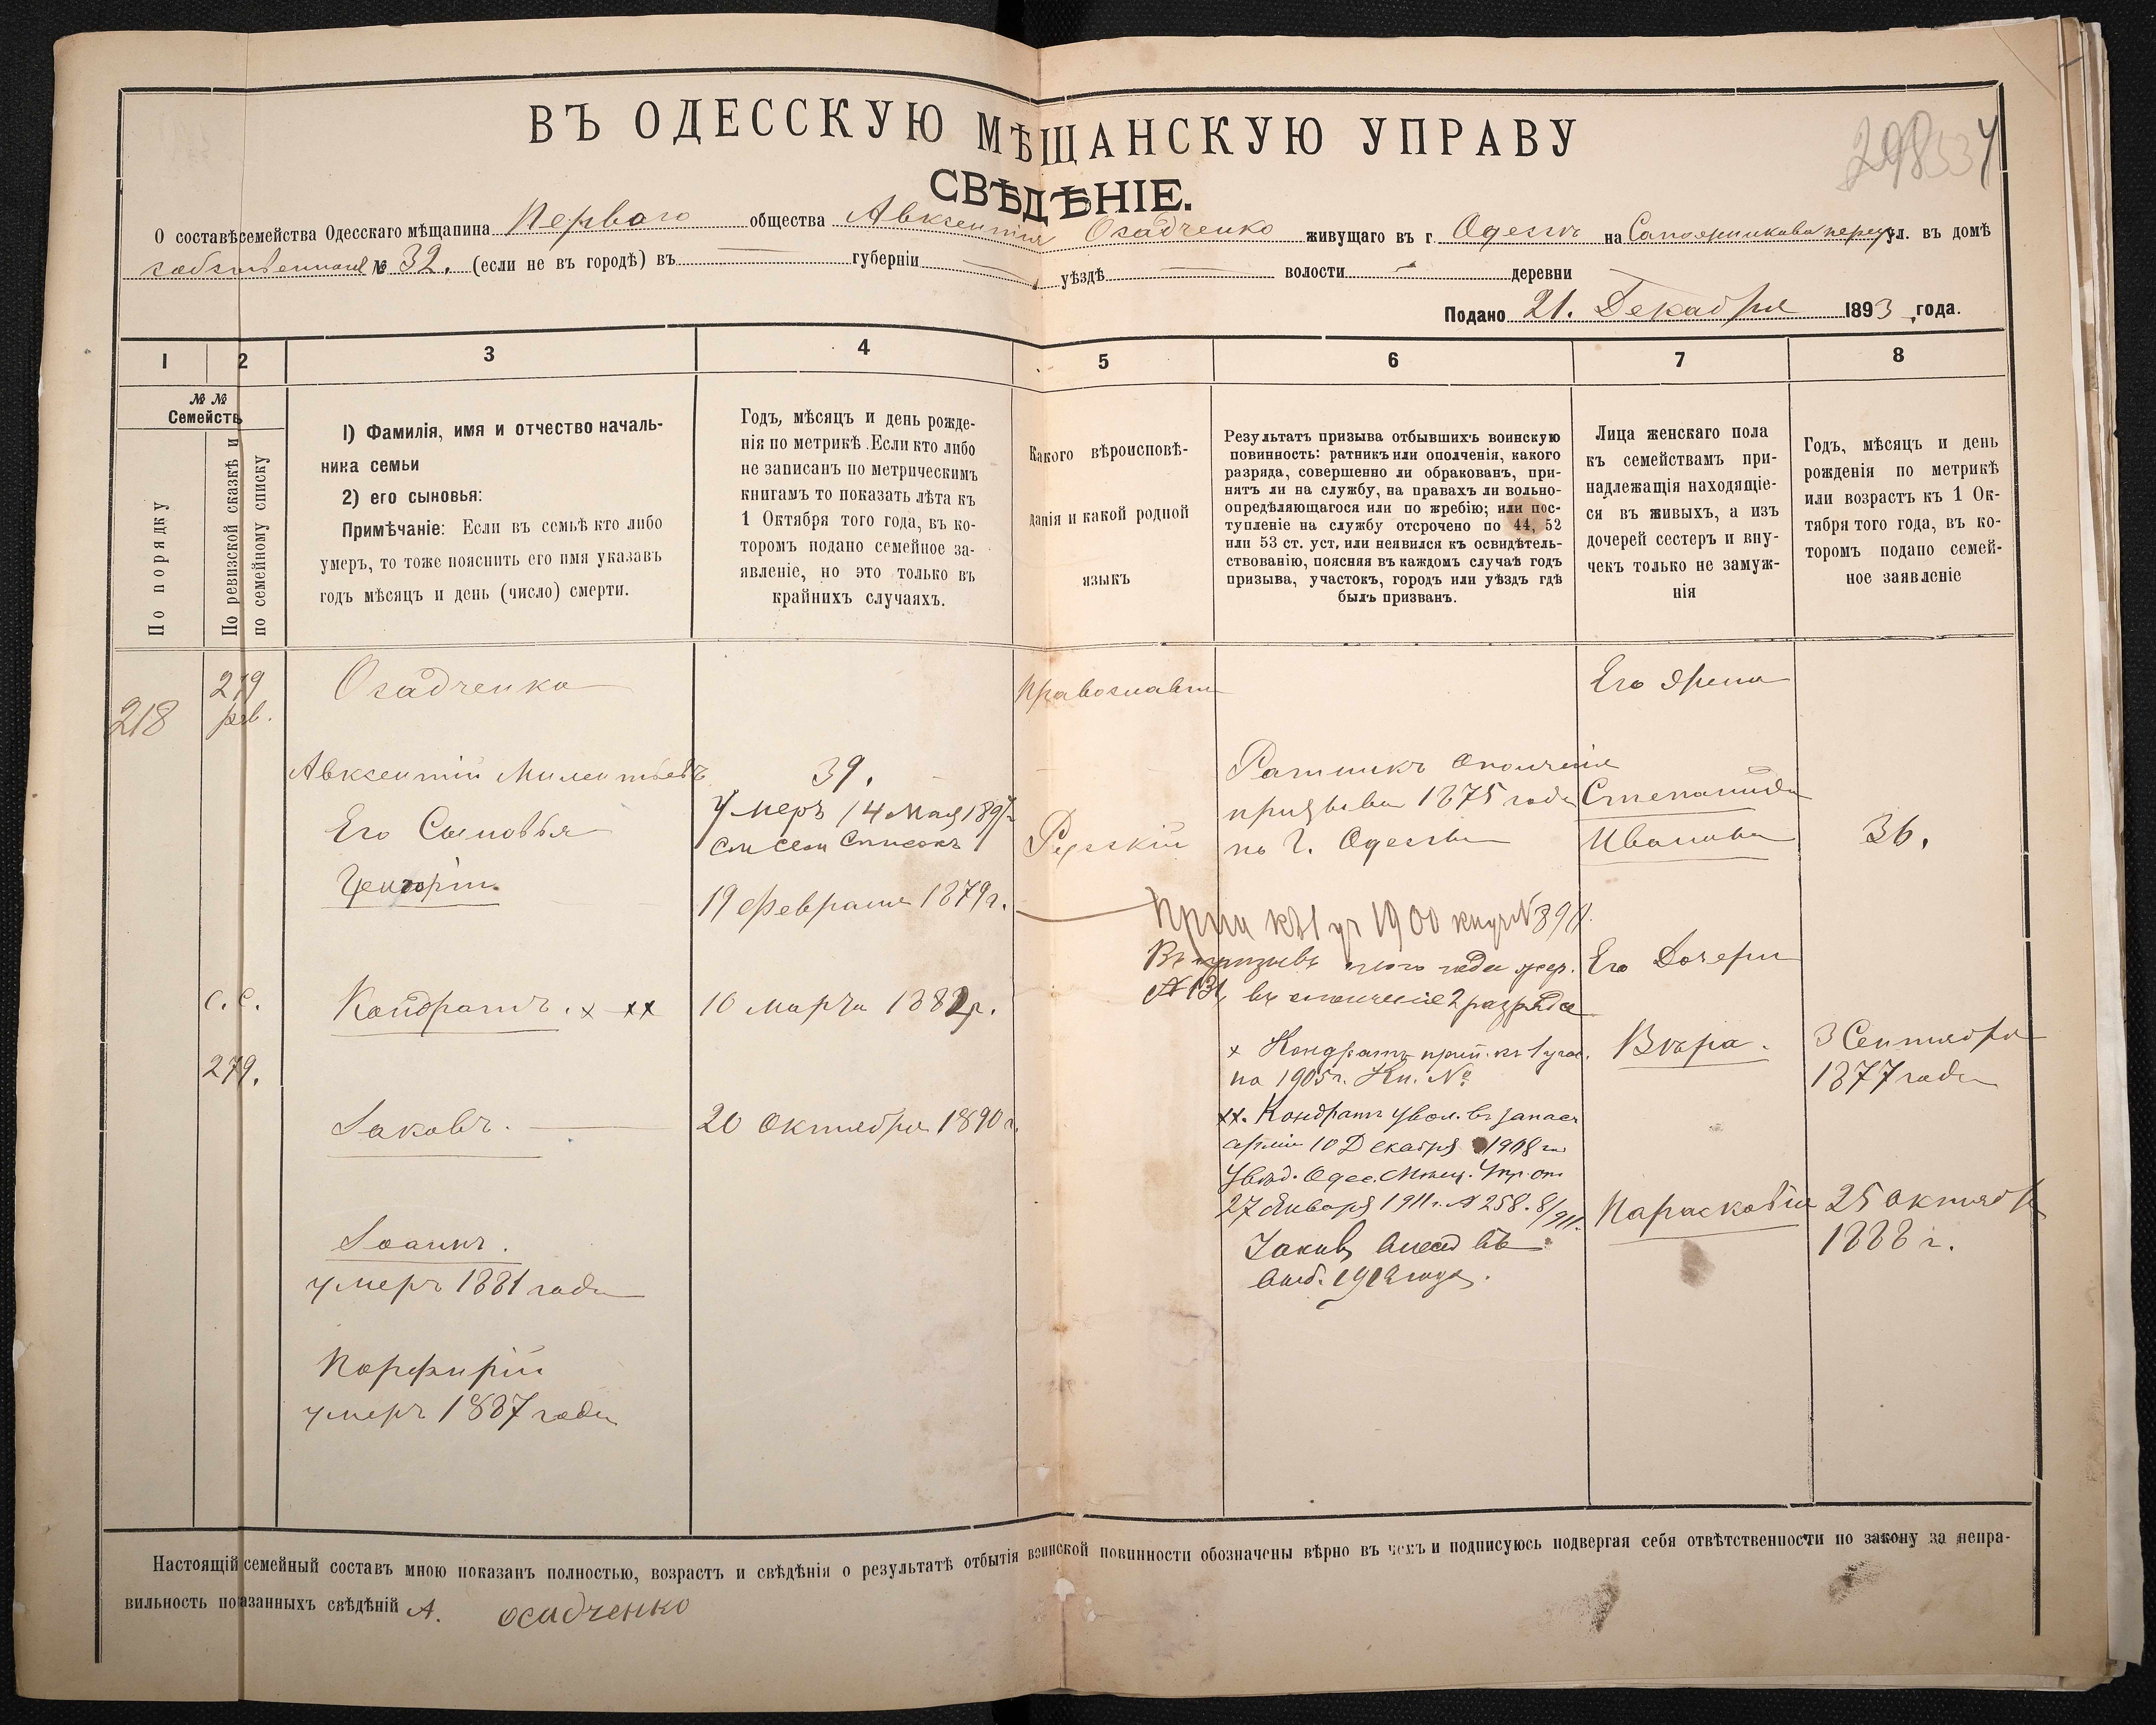 ВЪ ОДЕССКУЮ МѢЩАНСКУЮ УПРАВУ
СВѢДѢНІЕ.
О составѣ семейства Одесскаго мѣщанина Перваго общества Авксентія Осадченко живущаго въ г. Одессѣ на ул. въ домѣ
собственномъ № 32. (если не въ городѣ) въ губерніи уѣздѣ волости деревни
Подано 21. Декабря 1893 года.
1 2 3 4 5 6 7 8
№ № Семействъ
По порядку
По ревизской сказкѣ и по семейному списку
1) Фамилія, имя и отчество началь-
ника семьи
2) его сыновья:
Примѣчаніе: Если въ семьѣ кто либо
умеръ, то тоже пояснить его имя указавъ
годъ мѣсяцъ и день (число) смерти.
Годъ, мѣсяцъ и день рожде-
нія по метрикѣ. Если кто либо
не записанъ по метрическимъ
книгамъ то показать лѣта къ
1 Октября того года, въ ко-
торомъ подано семейное за-
явленіе, но это только въ
крайнихъ случаяхъ.
Какого вѣроисповѣ-
данія и какой родной
языкъ
Результатъ призыва отбывшихъ воинскую
повинность: ратникъ или ополченія, какого
разряда, совершенно ли обракованъ, при-
нятъ ли на службу, на правахъ ли вольно-
опредѣляющагося или по жребію; или пос-
тупленіе на службу отсрочено по 44, 52
или 53 ст. уст, или неявился къ освидѣтель-
ствованію, поясняя въ каждомъ случаѣ годъ
призыва, участокъ, городъ или уѣздъ гдѣ
былъ призванъ.
Лица женскаго пола
къ семействамъ при-
надлежащія находящіе-
ся въ живыхъ, а изъ
дочерей сестеръ и вну-
чекъ только не замуж-
нія
Годъ, мѣсяцъ и день
рожденія по метрикѣ
или возрастъ къ 1 Ок-
тября того года, въ ко-
торомъ подано семей-
ное заявленіе
218
279
рев.
с. с.
279.
Осадченко
Авксентій Милентьевъ
Его Сыновья
Григорій.
Кондратъ. x xx
Іаковъ.
Іоаннъ.
умеръ 1881 года
Порфирій
умеръ 1887 года
39.
Умеръ 14 Мая 1897
см сем списокъ
19 февраля 1879 г.
10 марта 1882 г.
20 Октября 1890 г.
Православн
Русскій
Ратникъ ополченія
призыва 1875 года
по г. Одессѣ
Прип къ 1 уч 1900
Въ призывъ года жер.
въ ополченіе 2 разряда
x Кондратъ прип. къ 1 учас.
на 1905 г. Кн. №
xx. Кондратъ увол. въ запасъ
арміи 10 Декабря 1908
Увѣд. Одес. Мѣщ. Упр. отъ
27 Января 1911 г. № 258. 8/911.
Его Жена
Степанида
Иванова
Его Дочери
Вѣра.
Парасковія
36.
3 Сентября
1877 года
25 октября
1888 г.
Настоящій семейный составъ мною показанъ полностью, возрастъ и свѣдѣнія о результатѣ отбытія воинской повинности обозначены вѣрно въ чемъ и подписуюсь подвергая себя отвѣтственности по закону за непра-
вильность показанныхъ свѣдѣній А. осадченко